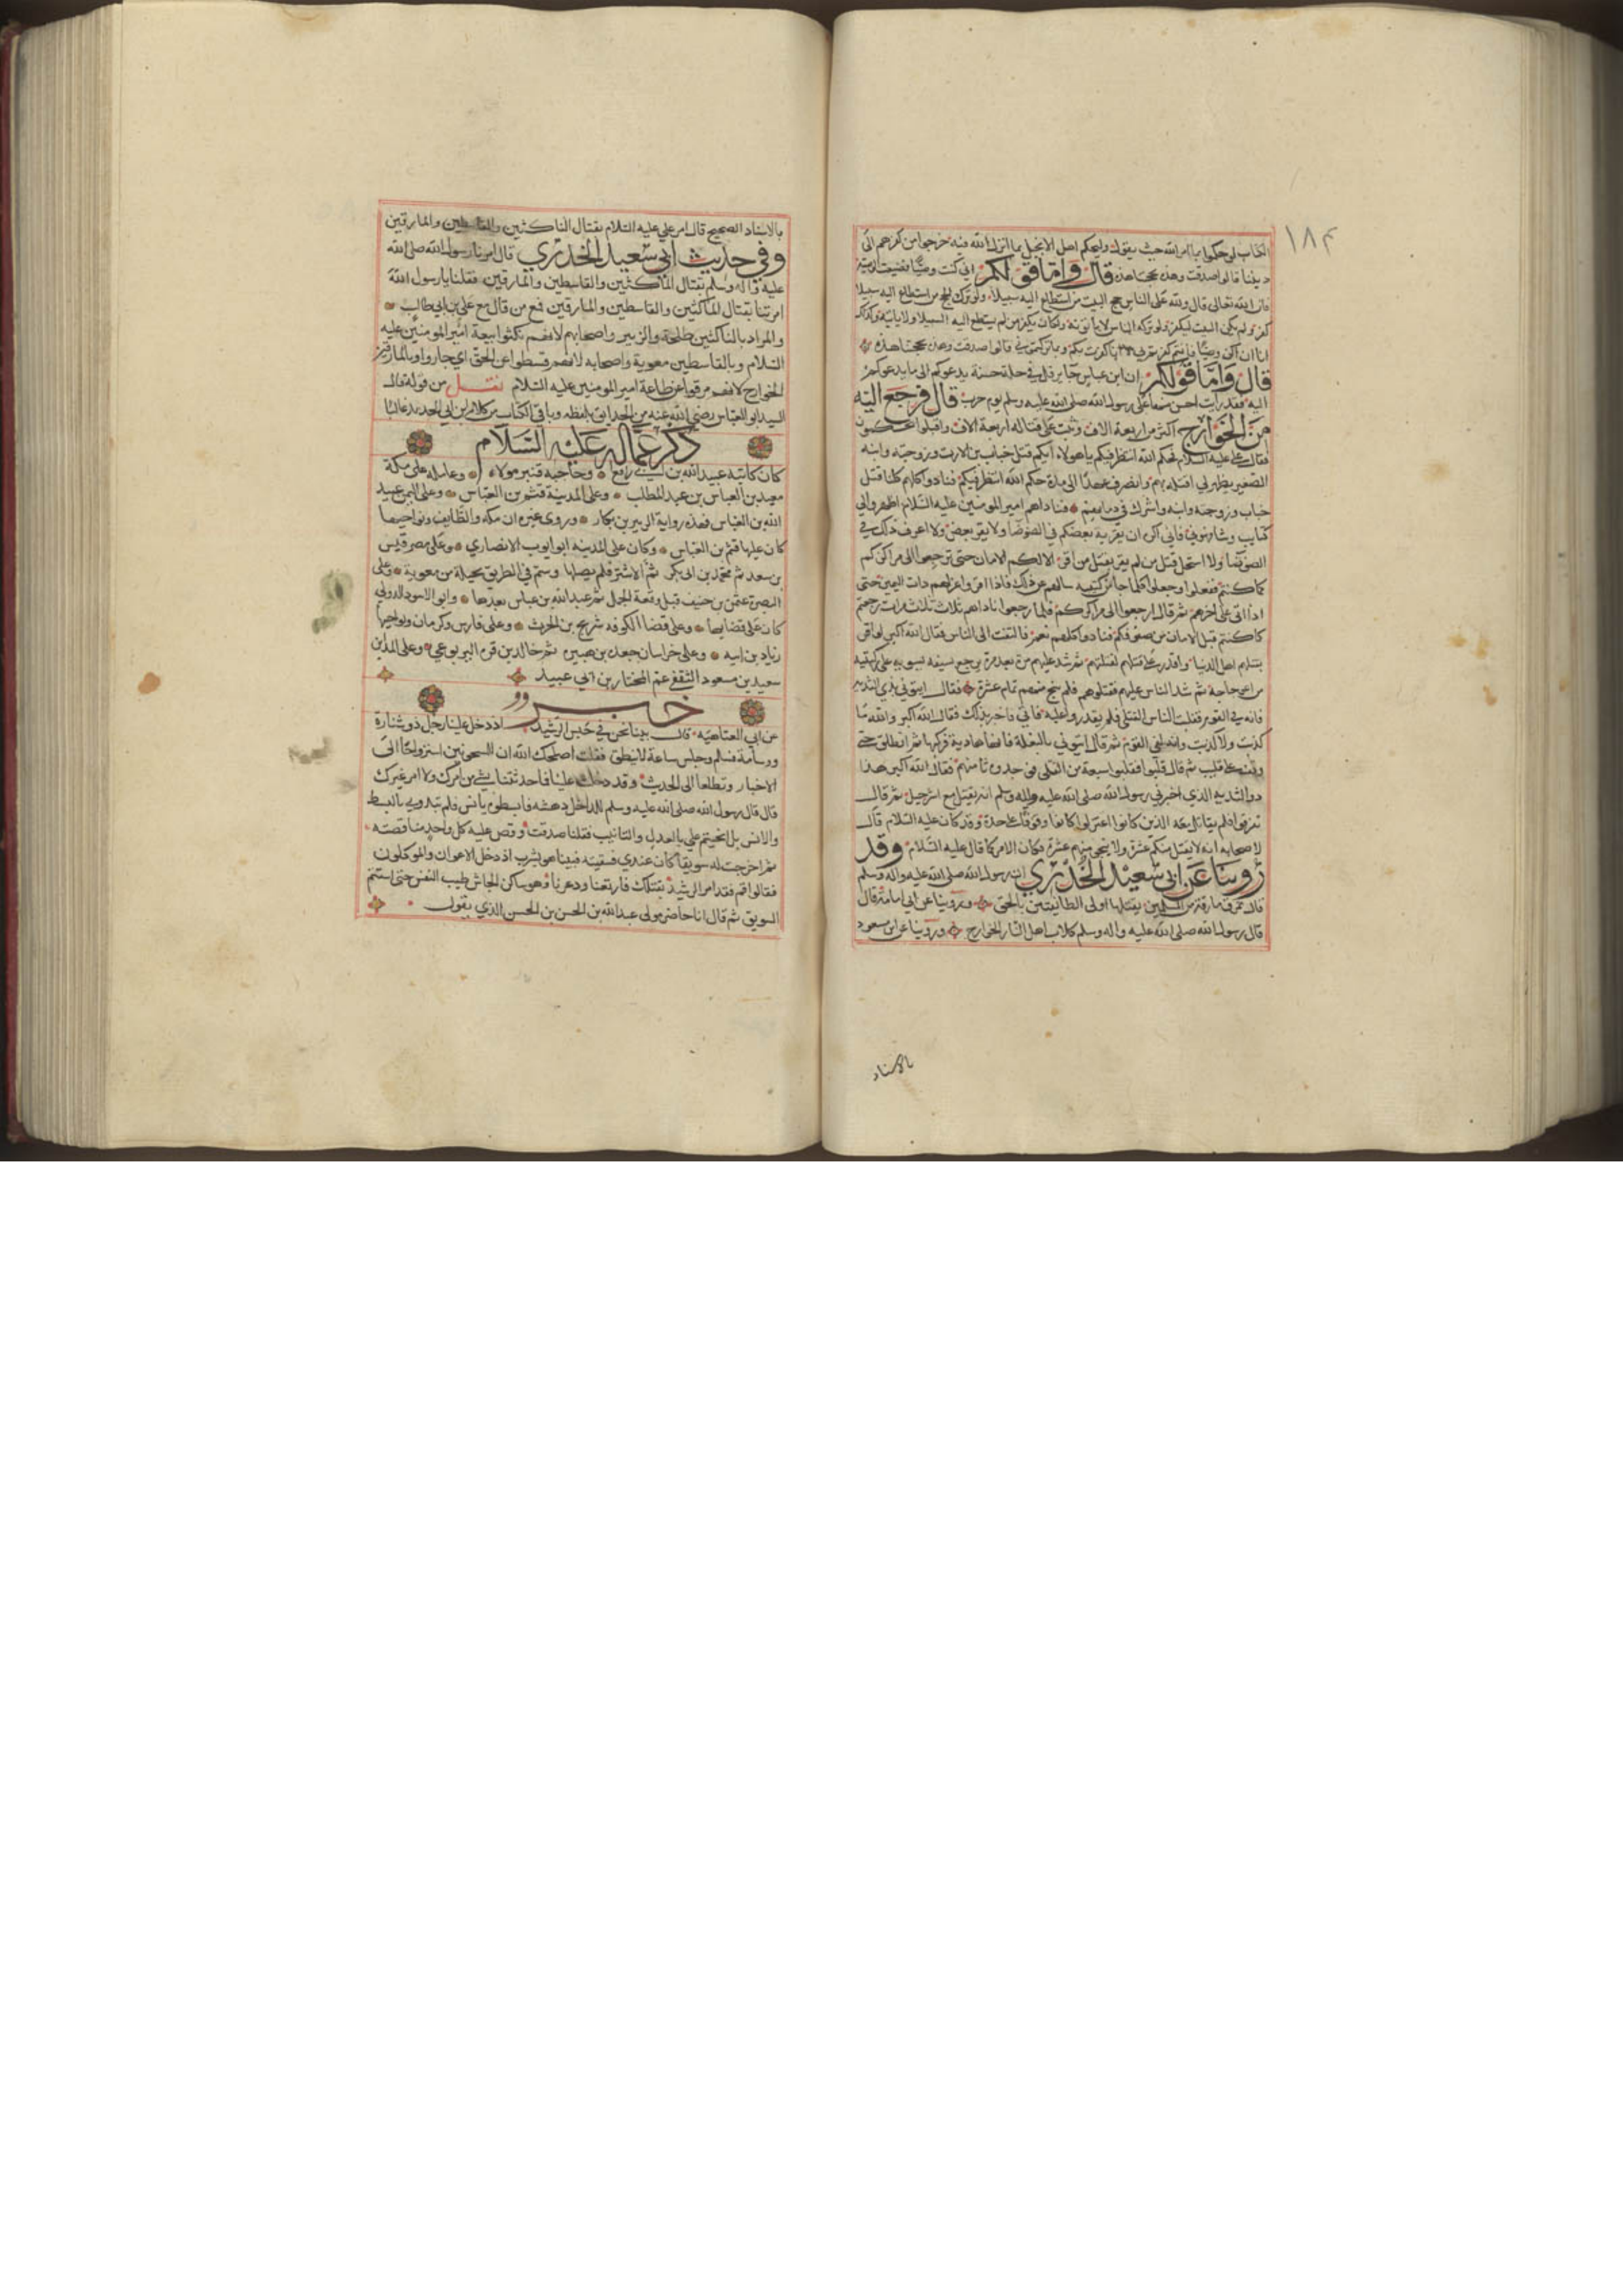 ١٨٣
الكتاب لو حكموا بما امر الله حيث يقول وليحكم اهل الانجيل بما انزل الله فيه خرجوا من كفرهم الى
ديننا قالوا صدقت وهذه بحجتنا هذه قال واما قولكم اني كنت وصيا فضيعت الوصية
فان الله تعالى قال ولله على الناس حج البيت من استطاع اليه سبيلا ولو ترك الحج من استطاع اليه سبيلا
كفر ولم يكن البيت ليكفر ولو تركه الناس لا يأتونه ولكان يكفر من لم يستطع اليه السبيل ولا ياتيه وكذلك
انا ان اكن وصيا فانتم كفرتم بي لا انا كفرت بكم وبما تركتموني قالوا صدقت وهذه بحجتنا هذه
قال واما قولكم ان ابن عباس جا يرفل في حلة حسنة يدعوكم الى ما يدعوكم
اليه فقد رايت احسن منها على رسول الله صلى الله عليه وسلم يوم حرب قال فرجع اليه
من الخوارج اكثر من اربعة الاف وثبت على قتاله اربعة الاف واقبلوا يحكمون
فقال علي عليه السلام حكم الله انتظر فيكم يا هولاء ايكم قتل خباب بن الارت وزوجته وابنه
الصغير يظهر لي اقتله بهم وانصرف عهدا الى مدة حكم الله انتظر فيكم فنادوا كلهم كلنا قتل
خباب وزوجته وابنه واشرك في دمايهم فناداهم امير المومنين عليه السلام اظهروا لي
كتايب وشافهوني فاني اكره ان يقر به بعضكم في الضوضا ولا يقر بعض ولا اعرف ذلك في
الضوضا ولا استحل قتل من لم يقر بقتل من اقر الا لكم الامان حتى ترجعوا الى مراكزكم
كما كنتم ففعلوا وجعلوا كلما جات كتيبه سالهم عن ذلك فاذا اقروا عزلهم ذات اليمين حتى
اذا اتى على اخرهم ثم قال ارجعوا الى مراكزكم فلما رجعوا ناداهم ثلاث مرات رجعتم
كما كنتم قبل الامان من صفوفكم فنادوا كلهم نعم فالتفت الى الناس فقال الله اكبر لو اقر
بقتلهم اهل الدنيا واقدر على قتلهم لقتلتهم ثم شد عليهم مرة بعد مرة يرجع بسيفه يسويه على ركبتيه
من اعوجاجه ثم شد الناس عليهم فقتلوهم فلم ينج منهم تمام عشرة فقال ايتوني بذي الثديه
فانه في القوم فقلب الناس القتلى فلم يقدروا عليه فاتي فاخبر بذلك فقال الله اكبر والله ما
كذبت ولا كذبت وانه لفي القوم ثم قال ايتوني بالبغلة فانها هادية فركبها ثم انطلق حتى
وقف على قليب ثم قال قلبوا فقلبوا سبعة من القتلى فوجدوه ثامنهم فقال الله اكبر هذا
ذو الثديه الذي اخبرني رسول الله صلى الله عليه واله وسلم انه يقتل مع شر جيل ثم قال
تفرقوا فلم يقاتل معه الذين كانوا اعتزلوا كانوا وقوفا على حدة وقد كان عليه السلام قال
لاصحابه انه لا يقتل منكم عشرة ولا ينجي منهم عشرة فكان الامر كما قال عليه السلام وقد
روينا عن ابي سعيد الخدري ان رسول الله صلى الله عليه واله وسلم
قال تمرق مارقة من المسلمين يقتلها اولى الطايفتين بالحق وروينا عن ابي امامة قال
قال رسول الله صلى الله عليه واله وسلم كلاب اهل النار الخوارج وروينا عن ابن مسعود
بالاسناد
بالاسناد الصحيح قال امر علي عليه السلام بقتال الناكثين والقاسطين والمارقين
وفي حديث ابي سعيد الخدري قال امرنا رسول الله صلى الله
عليه واله وسلم بقتال الناكثين والقاسطين والمارقين فقلنا يا رسول الله
امرتنا بقتال الناكثين والقاسطين والمارقين فمع من قال مع علي بن ابي طالب
والمراد بالناكثين طلحة والزبير واصحابهم لانهم نكثوا بيعة امير المومنين عليه
السلام وبالقاسطين معوية واصحابه لانهم قسطوا عن الحق اي جاروا وبالمارقين
الخوارج لانهم مرقوا عن طاعة امير المومنين عليه السلام نقل من قوله قال
السيد ابو العباس رضي الله عنه من الحدايق بلفظه وباقي الكتاب من كلام ابن ابي الحديد غالبا
ذكر عماله عليه السلام
كان كاتبه عبيد الله بن ابي رافع وحاجبه قنبر مولاه وعامله على مكة
معبد بن العباس بن عبد المطلب وعلى المدينة قثم بن العباس وعلى اليمن عبيد
الله بن العباس فهذه رواية الزبير بن بكار وروى غيره ان مكه والطايف ونواحيهما
كان عليها قثم بن العباس وكان على المدينه ابو ايوب الانصاري وعلى مصر قيس
بن سعد ثم محمد بن ابي بكر ثم الاشتر فلم يصلها وسم في الطريق بحيلة من معوية وعلى
البصرة عثمن بن حنيف قبل وقعة الجمل ثم عبد الله بن عباس بعدها وابو الاسود الدولي
كان على قضايها وعلى قضا الكوفه شريح بن الحرث وعلى فارس وكرمان ونواحيها
زياد بن ابيه وعلى خراسان جعدة بن هبيرة ثم خالد بن قرة اليربوعي وعلى المداين
سعيد بن مسعود الثقفي عم المختار بن ابي عبيد
خبر
عن ابي العتاهيه قال بينا نحن في حبس الرشيد اذ دخل علينا رجل ذو شارة
ورسامة فسلم وجلس ساعة لا ينطق فقلت اصلحك الله ان المسجونين استرواحا الى
الاخبار وتطلعا الى الحديث وقد دخلت علينا فما حدثتنا بشي من امرك ولا امر غيرك
قال قال رسول الله صلى الله عليه وسلم للداخل دهشه فابسطوه يانس فلم تبدوني بالبسط
والانس بل انحيتم علي بالعدل والتانيب فقلنا صدقت وقص عليه كل واحد منا قصته
ثم اخرجت له سويقا كان عندي فسقيته فبينا هو يشرب اذ دخل الاعوان والموكلون
فقالوا قم فقد امر الرشيد بقتلك فارتعنا وذعرنا وهو ساكن الجاش طيب النفس حتى استتم
السويق ثم قال انا حاضر مولى عبد الله بن الحسن بن الحسن الذي يقول